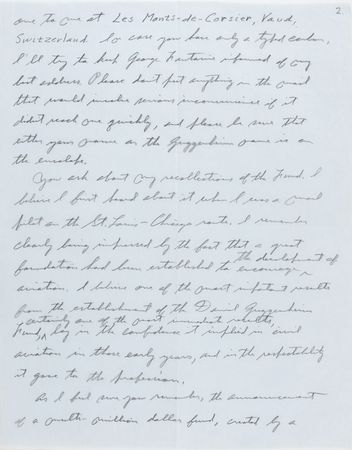 2.
one to me at Les Monts-de-Corsier, Vaud,
Switzerland. In case you have only a typed carbon,
I'll try to keep George informed of my
best address. Please don't put anything in the mail
that would involve serious inconvenience if it
didn't reach me quickly, and please be sure that
either your name or the Guggenheim name is on
the envelope.
You ask about my recollections of the Fund. I
believe I first heard about it when I was a mail
pilot on the St. Louis-Chicago route. I remember
clearly being impressed by the fact that a great
foundation had been established to encourage the development of
aviation. I believe one of the most important results
from the establishment of the Daniel Guggenheim
Fund, certainly one of the most immediate results,
lay in the confidence it implied in
aviation in those early years, and in the respectability
it gave to the profession.
As I feel sure you remember, the announcement
of a multi-million dollar fund, created by a